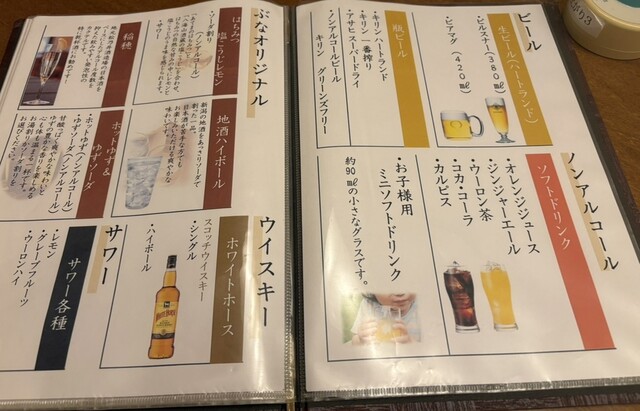 ビール
生ビール(ハートランド)
・ピルスナー(380㎖)
・ビアマグ(420㎖)
瓶ビール
・キリン ハートランド
・キリン 一番搾り
・アサヒ スーパードライ
・ノンアルコールビール
キリン グリーンズフリー
ノンアルコール
ソフトドリンク
・オレンジジュース
・ジンジャーエール
・ウーロン茶
・コカ・コーラ
・カルピス
・お子様用
ミニソフトドリンク
約90㎖の小さなグラスです。
ぶなオリジナル
はちみつ
塩こうじレモン
・ソーダ割り
(ノンアルコール)
・サワー
稲穂
地酒ハイボール
新潟の地酒をあっさりソーダで
割った一品。
日本酒が苦手なかたでも
お楽しみいただける爽やかな
味わいです。
ホットゆず&
ゆずソーダ
・ホットゆず(ノンアルコール)
・ゆずソーダ(ノンアルコール)
・サワー
ウイスキー
ホワイトホース
スコッチウイスキー
・シングル
・ハイボール
サワー
サワー各種
・レモン
・グレープフルーツ
・ウーロンハイ